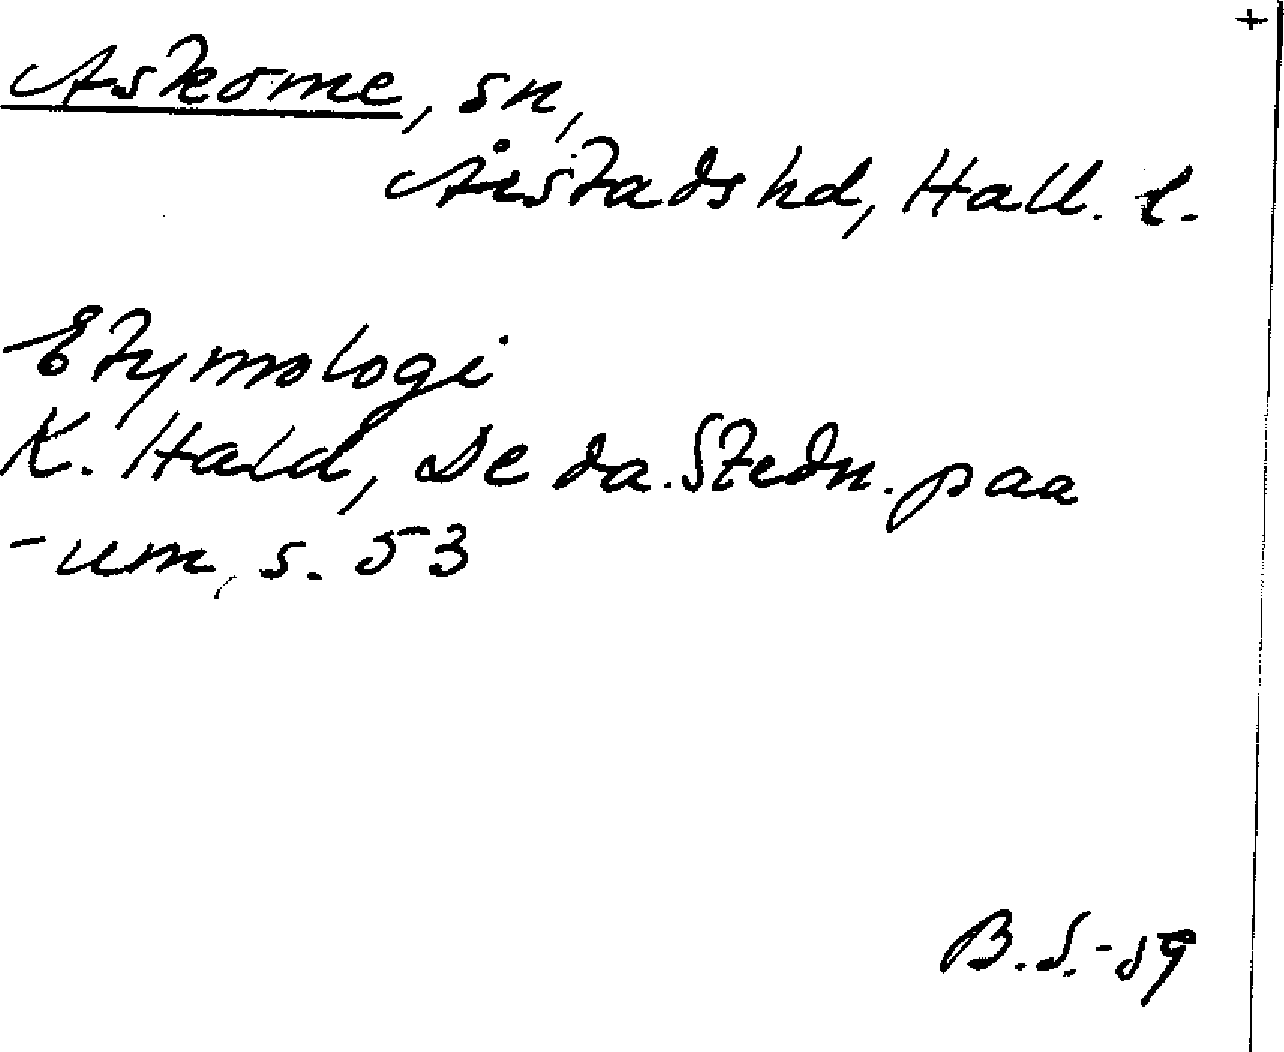 +
Askome, sn,
Årstads hd, Hall. l.
Etymologi
K. Hald, De da. Stedn. paa
-um, s. 53
B.S.-59